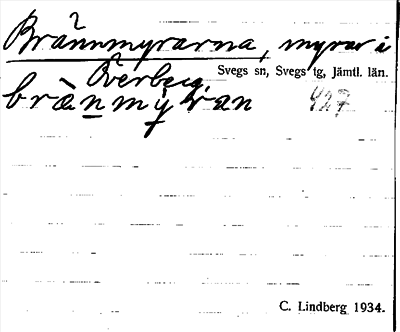 Brännmyrarna, myrar i
Överberg,
Svegs sn, Svegs tg, Jämtl. län.
bræ̀n̲mỳran 427
C. Lindberg 1934.